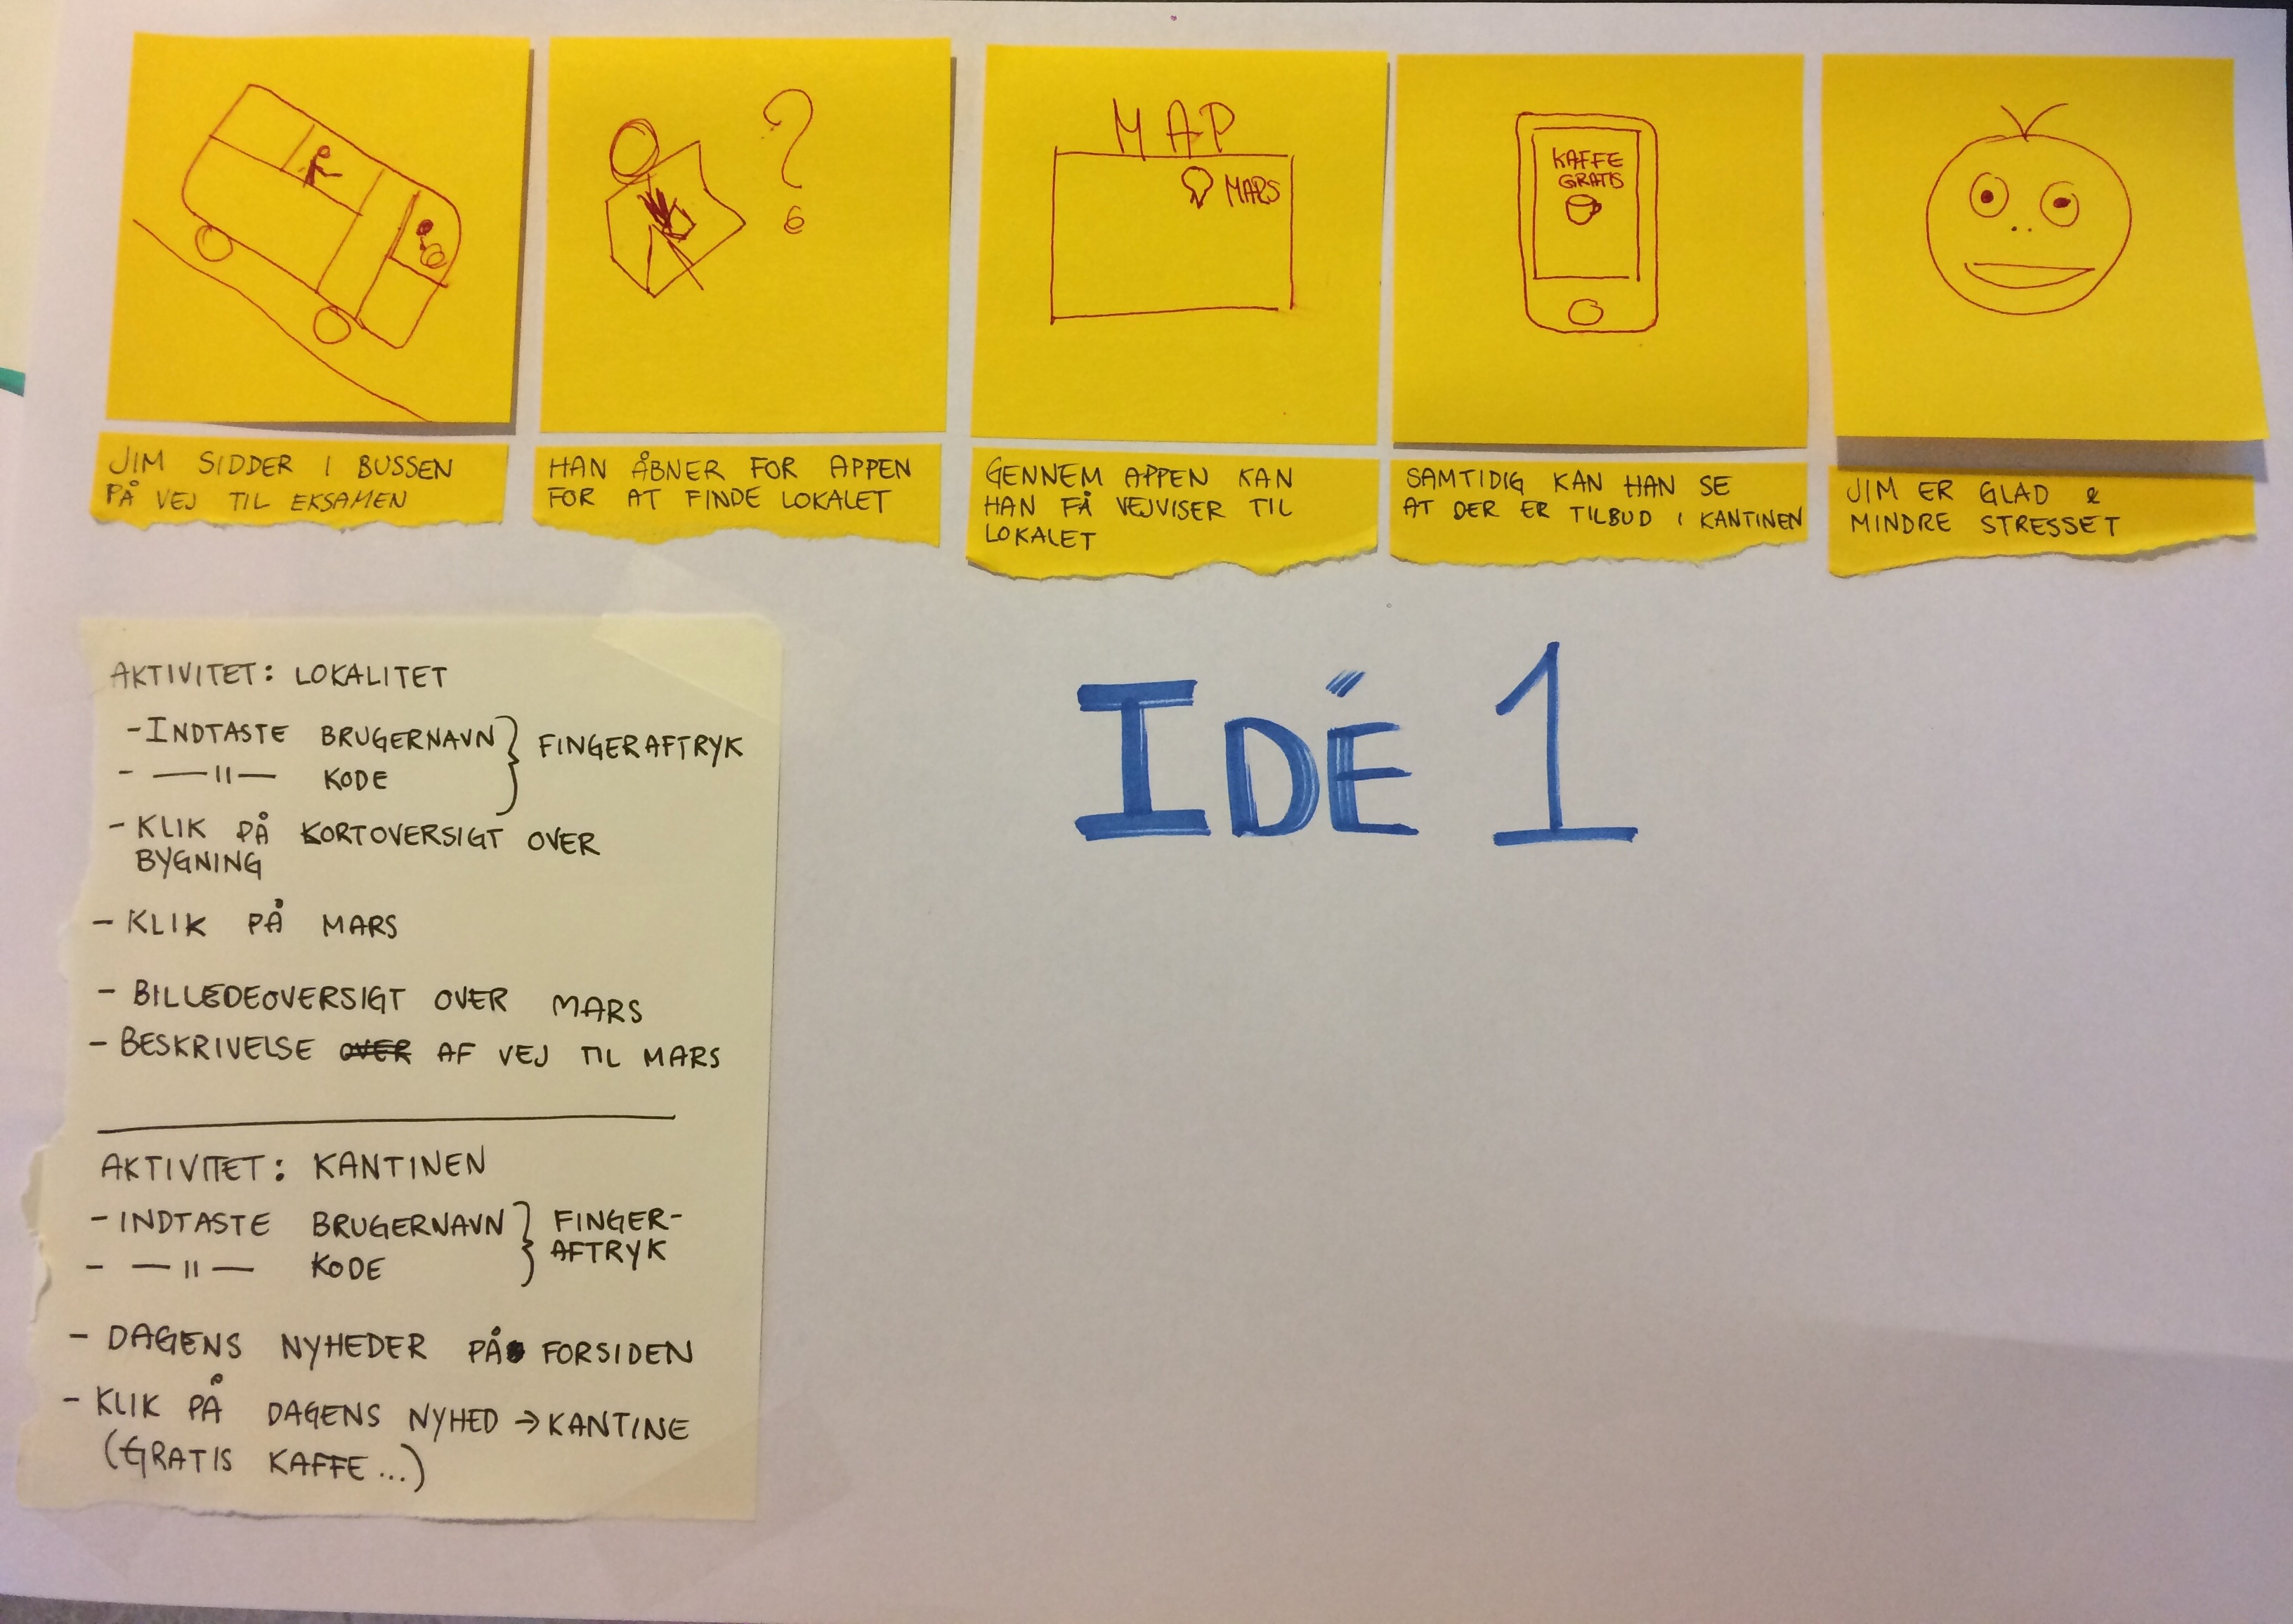 MAP
MARS
KAFFE
GRATIS
JIM SIDDER I BUSSEN
PÅ VEJ TIL EKSAMEN
HAN ÅBNER FOR APPEN
FOR AT FINDE LOKALET
GENNEM APPEN KAN
HAN FÅ VEJVISER TIL
LOKALET
SAMTIDIG KAN HAN SE
AT DER ER TILBUD I KANTINEN
JIM ER GLAD &
MINDRE STRESSET
IDÉ 1
AKTIVITET: LOKALITET
- INDTASTE BRUGERNAVN } FINGERAFTRYK
- —"— KODE
- KLIK PÅ KORTOVERSIGT OVER
BYGNING
- KLIK PÅ MARS
- BILLEDEOVERSIGT OVER MARS
- BESKRIVELSE OVER AF VEJ TIL MARS
AKTIVITET: KANTINEN
- INDTASTE BRUGERNAVN } FINGER-
AFTRYK
- —"— KODE
- DAGENS NYHEDER PÅ FORSIDEN
- KLIK PÅ DAGENS NYHED → KANTINE
(GRATIS KAFFE...)